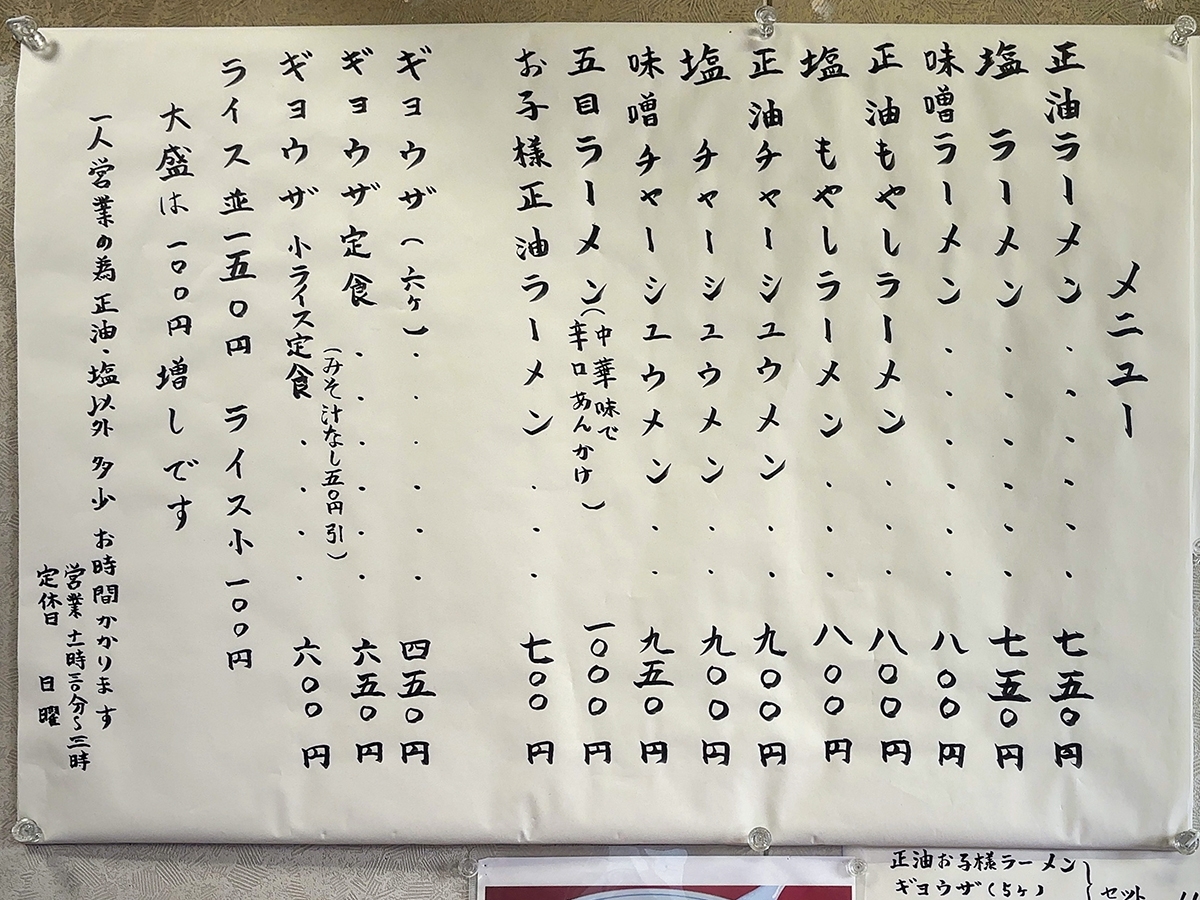 メニュー
正油ラーメン・・・・・・七五〇円
塩　ラーメン・・・・・・七五〇円
味噌ラーメン・・・・・・八〇〇円
正油もやしラーメン・・・八〇〇円
塩　もやしラーメン・・・八〇〇円
正油チャーシュウメン・・九〇〇円
塩　チャーシュウメン・・九〇〇円
味噌チャーシュウメン・・九五〇円
五目ラーメン(中華味で
辛口あんかけ)一〇〇〇円
お子様正油ラーメン・・・七〇〇円
ギョウザ(六ケ)・・・・・・四五〇円
ギョウザ定食・・・・・・六五〇円
(みそ汁なし五〇円引)
ギョウザ小ライス定食・・・・六〇〇円
ライス並一五〇円　ライス小一〇〇円
大盛は一〇〇円増しです
一人営業の為正油・塩以外多少お時間かかります
営業十一時三〇分〜三時
定休日　日曜
正油お子様ラーメン
ギョウザ(5ヶ)
セット